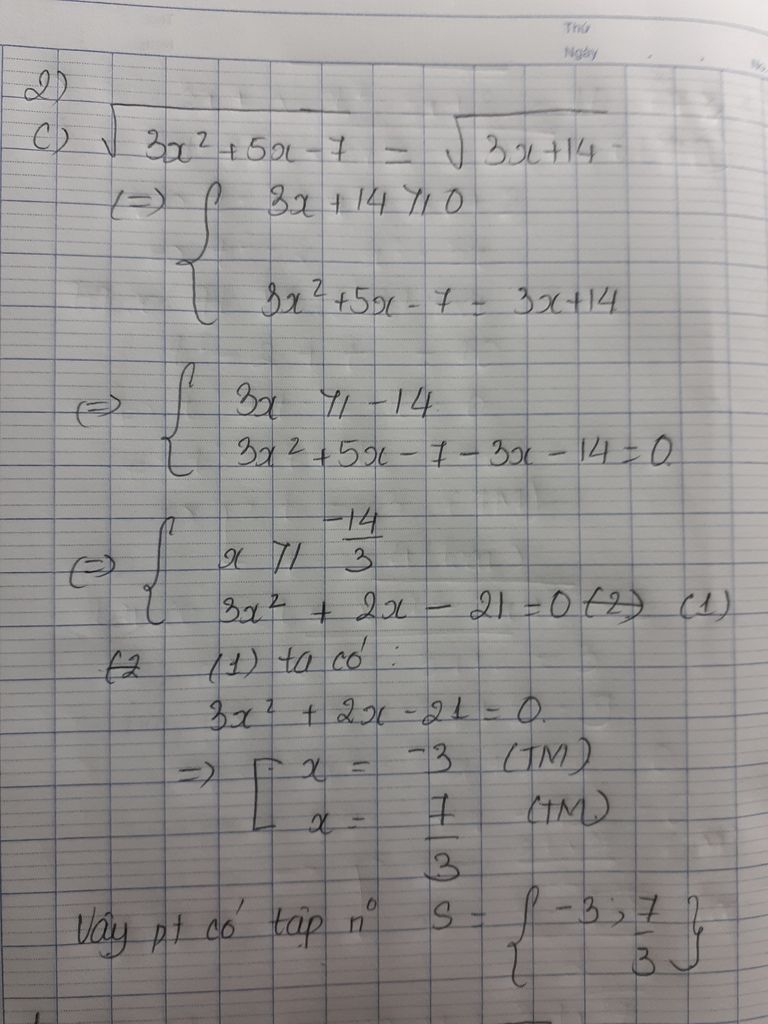 Thứ
Ngày
No.
2)
c) √(3x² + 5x - 7) = √(3x + 14)
(=) { 3x + 14 ≥ 0
3x² + 5x - 7 = 3x + 14
(=) { 3x ≥ -14
3x² + 5x - 7 - 3x - 14 = 0
(=) { x ≥ -14/3
3x² + 2x - 21 = 0 (2) (1)
(2 (1) ta có :
3x² + 2x - 21 = 0.
=> [ x = -3 (TM)
x = 7/3 (TM)
Vậy pt có tập n° S = { -3 ; 7/3 }